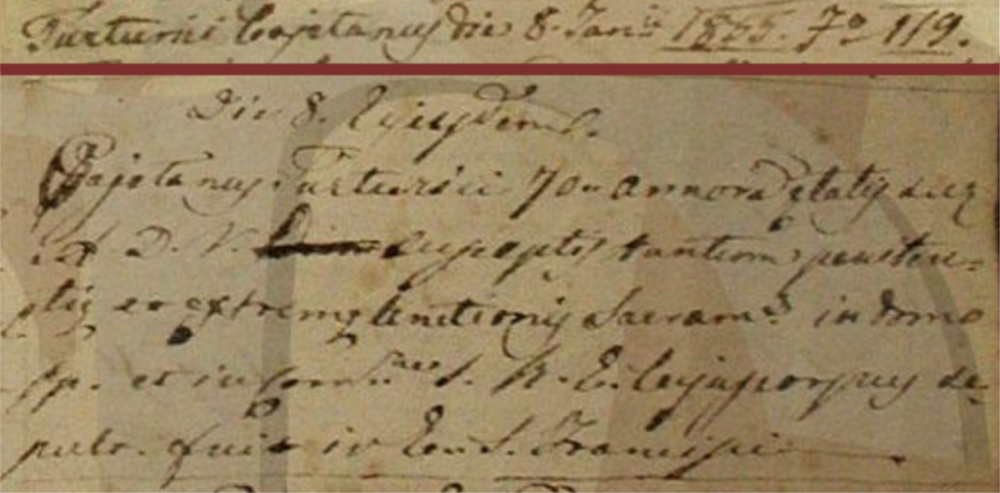 Turturici Cajetanus die 8. Jan.ii 1885. 7º 119.
Die 8. Ejusdem.
Cajetanus Turturici 70 annorū etatis suę
D. V. susceptis tantum peniten-
tię et extremę unctionis Sacram.is in domo
pp. et in com.ne S. R. E. cujus corpus se-
pult. fuit in S. Francisci